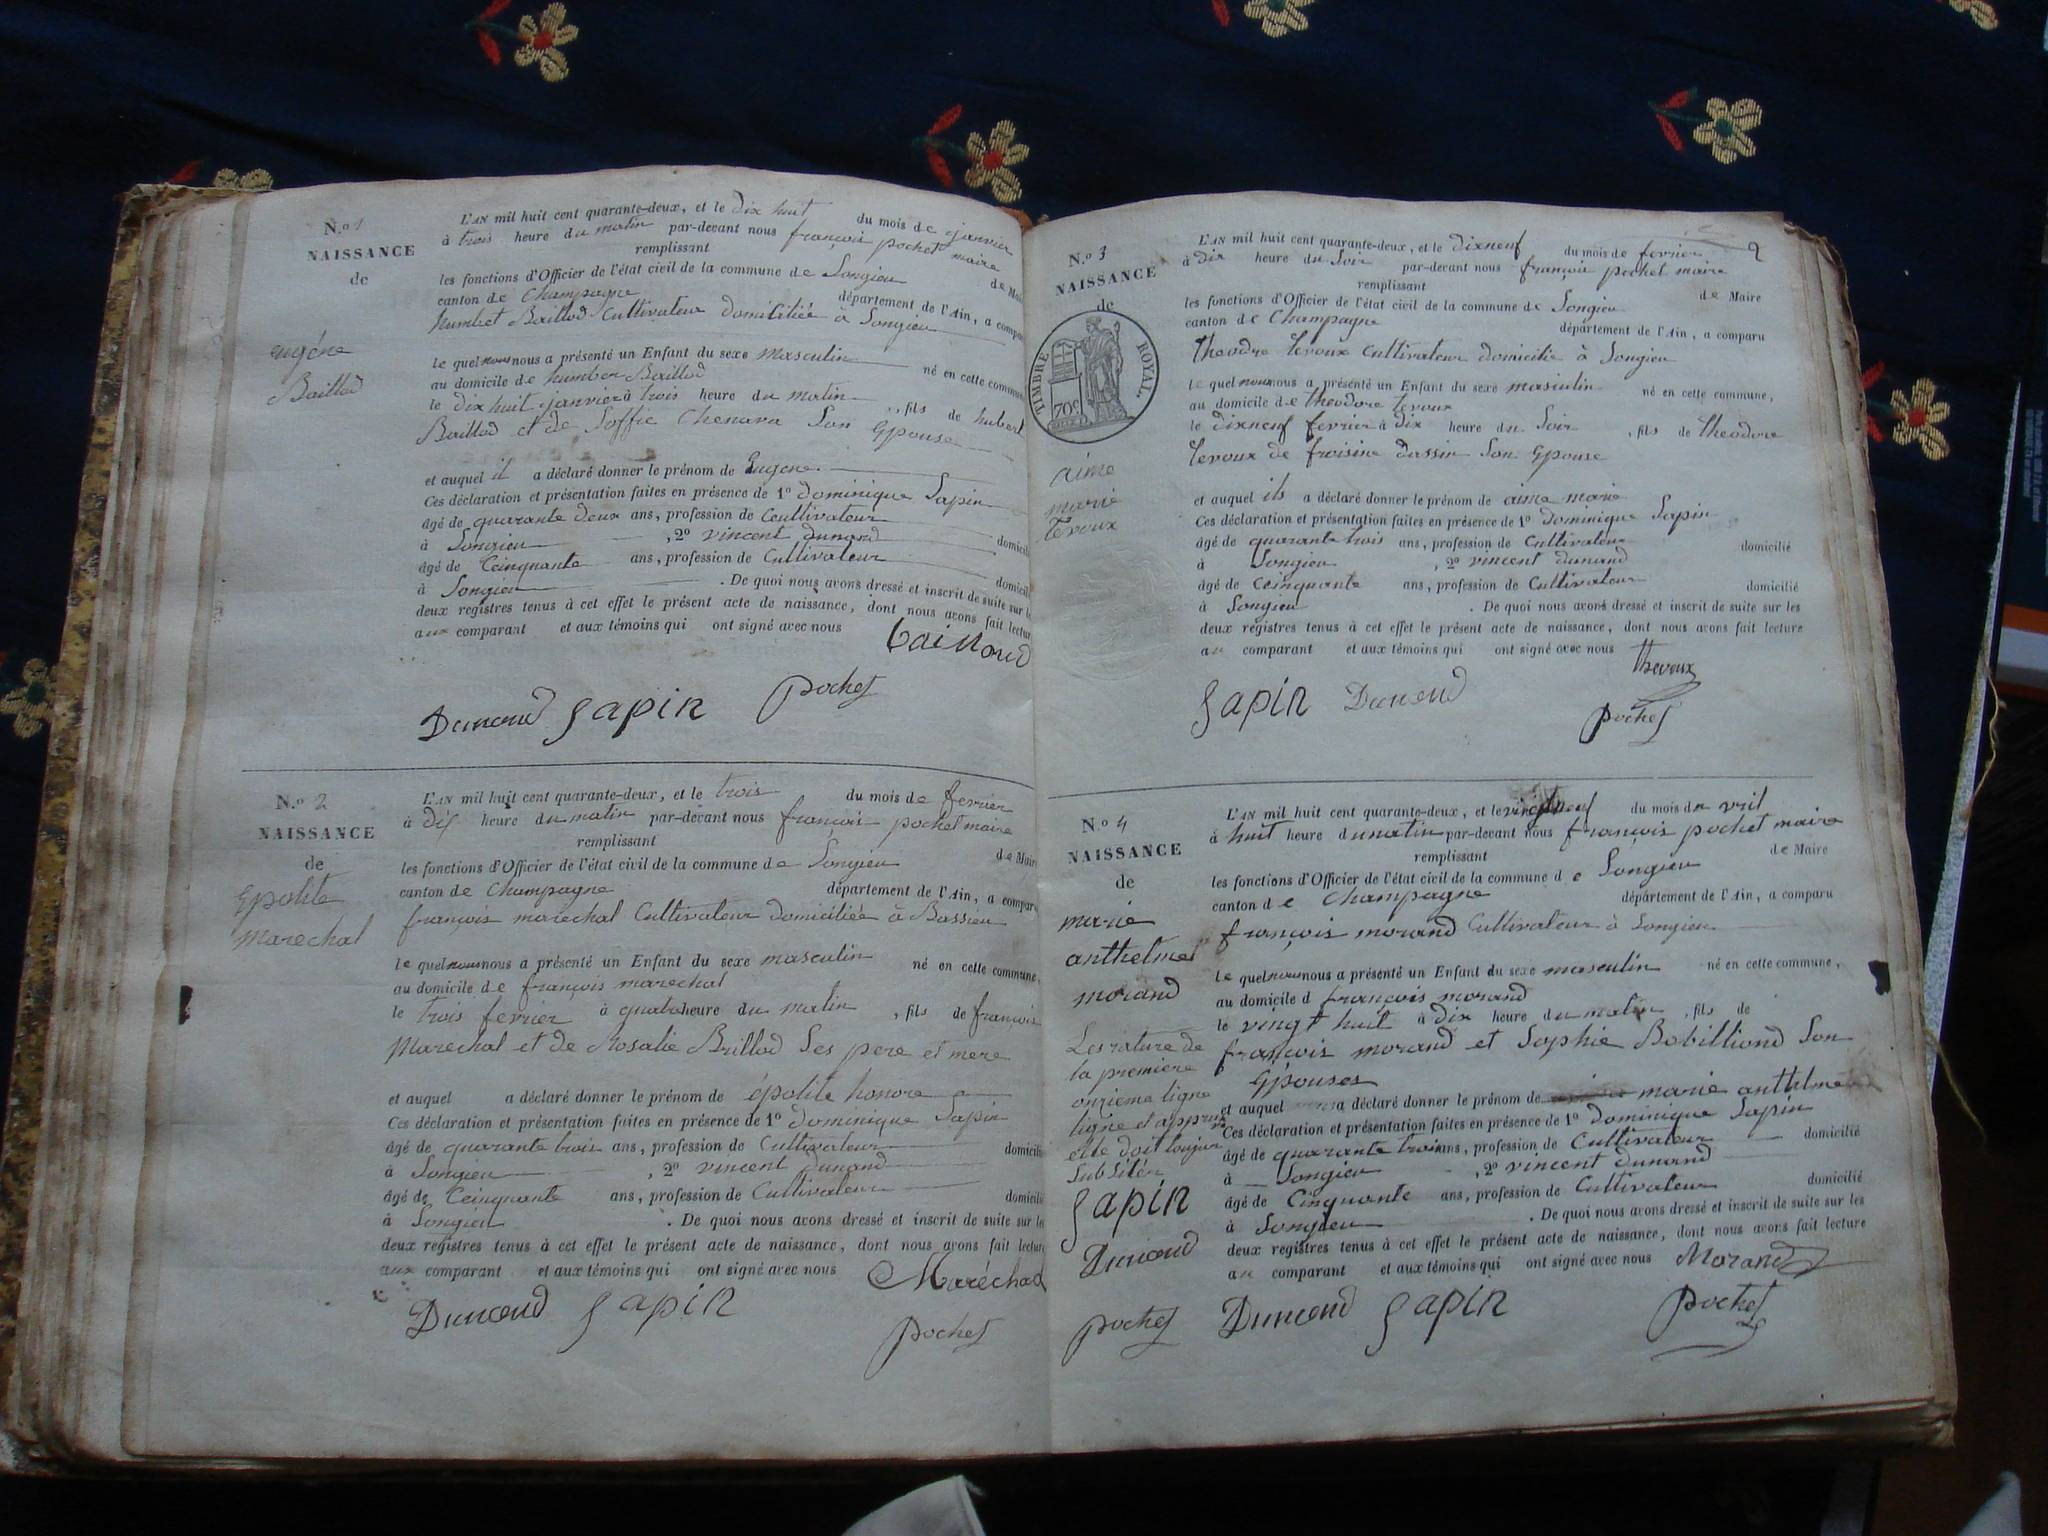 N.o 1
NAISSANCE
de
eugéne
Baillod
L'AN mil huit cent quarante-deux, et le dix huit du mois de janvier
à trois heure du matin par-devant nous françois pochet maire
remplissant
les fonctions d'Officier de l'état civil de la commune de Songieu de Mair
canton de Champagne département de l'Ain, a compar
humbet Baillod Cultivateur domiciliée à Songieu
le quel nous a présenté un Enfant du sexe masculin né en cette commune
au domicile de humber Baillod
le dix huit janvier à trois heure du matin , fils de hubert
Baillod et de Soffie Chenava Son Epouse
et auquel il a déclaré donner le prénom de Eugene
Ces déclaration et présentation faites en présence de 1o dominique Sapin
âgé de quarante deux ans, profession de Cultivateur
à Songieu , 2o vincent dunand domicili
âgé de Ceinquante ans, profession de Cultivateur
à Songieu domicili
. De quoi nous avons dressé et inscrit de suite sur le
deux registres tenus à cet effet le présent acte de naissance, dont nous avons fait lecture
aux comparant et aux témoins qui ont signé avec nous
bailloud
Dunand Sapin pochet
N.o 2
NAISSANCE
de
Epolite
marechal
L'AN mil huit cent quarante-deux, et le trois du mois de fevrier
à dix heure du matin par-devant nous françois pochet maire
remplissant
les fonctions d'Officier de l'état civil de la commune de Songieu de Mair
canton de Champagne département de l'Ain, a comparu
françois marechal Cultivateur domiciliée à Bassieu
le quel nous a présenté un Enfant du sexe masculin né en cette commune,
au domicile de françois marechal
le trois fevrier à heure du matin , fils de françois
Marechal et de Rosalie Brillod Ses pere et mere
et auquel a déclaré donner le prénom de épolite honore
Ces déclaration et présentation faites en présence de 1o dominique Sapin
âgé de quarante trois ans, profession de Cultivateur
à Songieu , 2o vincent dunand domicili
âgé de Ceinquante ans, profession de Cultivateur
à Songieu domicili
. De quoi nous avons dressé et inscrit de suite sur le
deux registres tenus à cet effet le présent acte de naissance, dont nous avons fait lecture
aux comparant et aux témoins qui ont signé avec nous
Maréchal
Dunand Sapin pochet
2
N.o 3
NAISSANCE
de
TIMBRE ROYAL
70c
aime
marie
tevoux
L'AN mil huit cent quarante-deux, et le dixneuf du mois de fevrier
à dix heure du Soir par-devant nous françois pochet maire
remplissant
les fonctions d'Officier de l'état civil de la commune de Songieu de Maire
canton de Champagne département de l'Ain, a comparu
theodre tevoux Cultivateur domicilie à Songieu
le quel nous a présenté un Enfant du sexe masculin né en cette commune,
au domicile de theodore tevoux
le dixneuf fevrier à dix heure du Soir , fils de theodore
tevoux de froisine dassin Son Epouse
et auquel ils a déclaré donner le prénom de aime marie
Ces déclaration et présentation faites en présence de 1o dominique Sapin
âgé de quarante trois ans, profession de Cultivateur domicilié
à Songieu , 2o vincent dunand
âgé de Ceinquante ans, profession de Cultivateur domicilié
à Songieu . De quoi nous avons dressé et inscrit de suite sur les
deux registres tenus à cet effet le présent acte de naissance, dont nous avons fait lecture
au comparant et aux témoins qui ont signé avec nous thevoux
Sapin Dunand
pochet
N.o 4
NAISSANCE
de
marie
anthelme
morand
Les rature de
la premiere
onzieme ligne
ligne et
elle doit toujour
Sapin
Dunand
pochet
L'AN mil huit cent quarante-deux, et le vingtneuf du mois d'avril
à huit heure du matin par-devant nous françois pochet maire
remplissant
les fonctions d'Officier de l'état civil de la commune de Songieu de Maire
canton de Champagne département de l'Ain, a comparu
françois morand Cultivateur à Songieu
le quel nous a présenté un Enfant du sexe masculin né en cette commune,
au domicile d françois morand
le vingt huit à dix heure du matin , fils de
françois morand et Sophie Bobilliond Son
Epouses
et auquel a déclaré donner le prénom de marie anthelme
Ces déclaration et présentation faites en présence de 1o dominique Sapin
âgé de quarante trois ans, profession de Cultivateur domicilié
à Songieu , 2o vincent dunand
âgé de Cinquante ans, profession de Cultivateur domicilié
à Songieu . De quoi nous avons dressé et inscrit de suite sur les
deux registres tenus à cet effet le présent acte de naissance, dont nous avons fait lecture
au comparant et aux témoins qui ont signé avec nous Morand
Dunand Sapin pochet